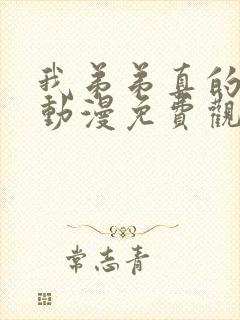 我弟弟真的
動漫免費觀
常志青